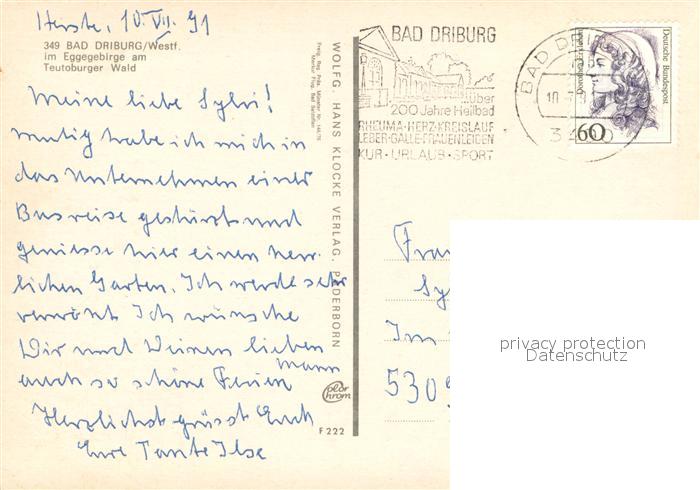 Herste, 10. VII. 91
349 BAD DRIBURG/Westf.
im Eggegebirge am
Teutoburger Wald
Meine liebe Sylvi!
mutig habe ich mich in
das Unternehmen einer
Busreise gestürzt und
geniesse hier einen herr-
lichen Garten. Ich werde sehr
verwönt. Ich wünsche
Dir und Deinen lieben
mann
auch so schöne Ferien
Herzlichst grüsst Euch
Eure Tante Ilse
WOLFG. HANS KLOCKE VERLAG, PADERBORN
color
chrom
F 222
BAD DRIBURG
über
200 Jahre Heilbad
RHEUMA·HERZ·KREISLAUF
LEBER·GALLE·FRAUENLEIDEN
KUR·URLAUB·SPORT
BAD DRIB
Deutsche Bundespost
60
Frau
Sy
Im
5309
privacy protection
Datenschutz